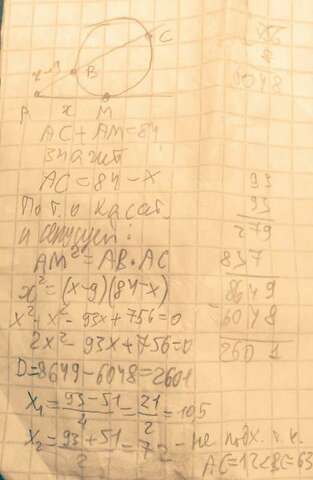 C
x-9
B
A
x
M
756
8
6048
AC + AM = 84
значит
AC = 84 - x
По т. о касат.
и секущей:
AM² = AB · AC
x² = (x-9)(84-x)
x² - x² - 93x + 756 = 0
2x² - 93x + 756 = 0
D = 8649 - 6048 = 2601
x₁ = 93-51 / 4 = 21 / 2 = 105
x₂ = 93+51 / 2 = 72 - не подх. т.к.
AC = 12 < BC = 63
93
93
279
837
8649
6048
2601